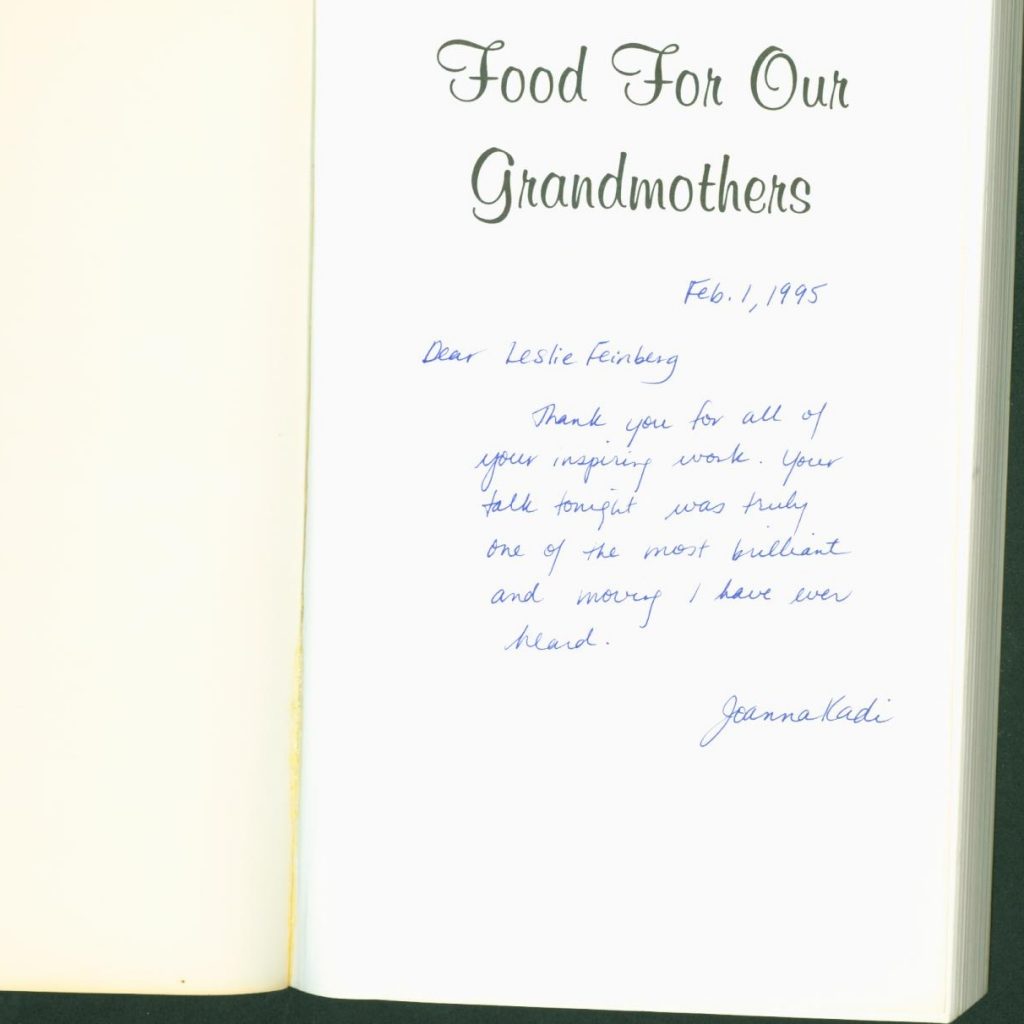 Food For Our
Grandmothers
Feb. 1, 1995
Dear Leslie Feinberg
Thank you for all of
your inspiring work. Your
talk tonight was truly
one of the most brilliant
and moving I have ever
heard.
Joanna Kadi